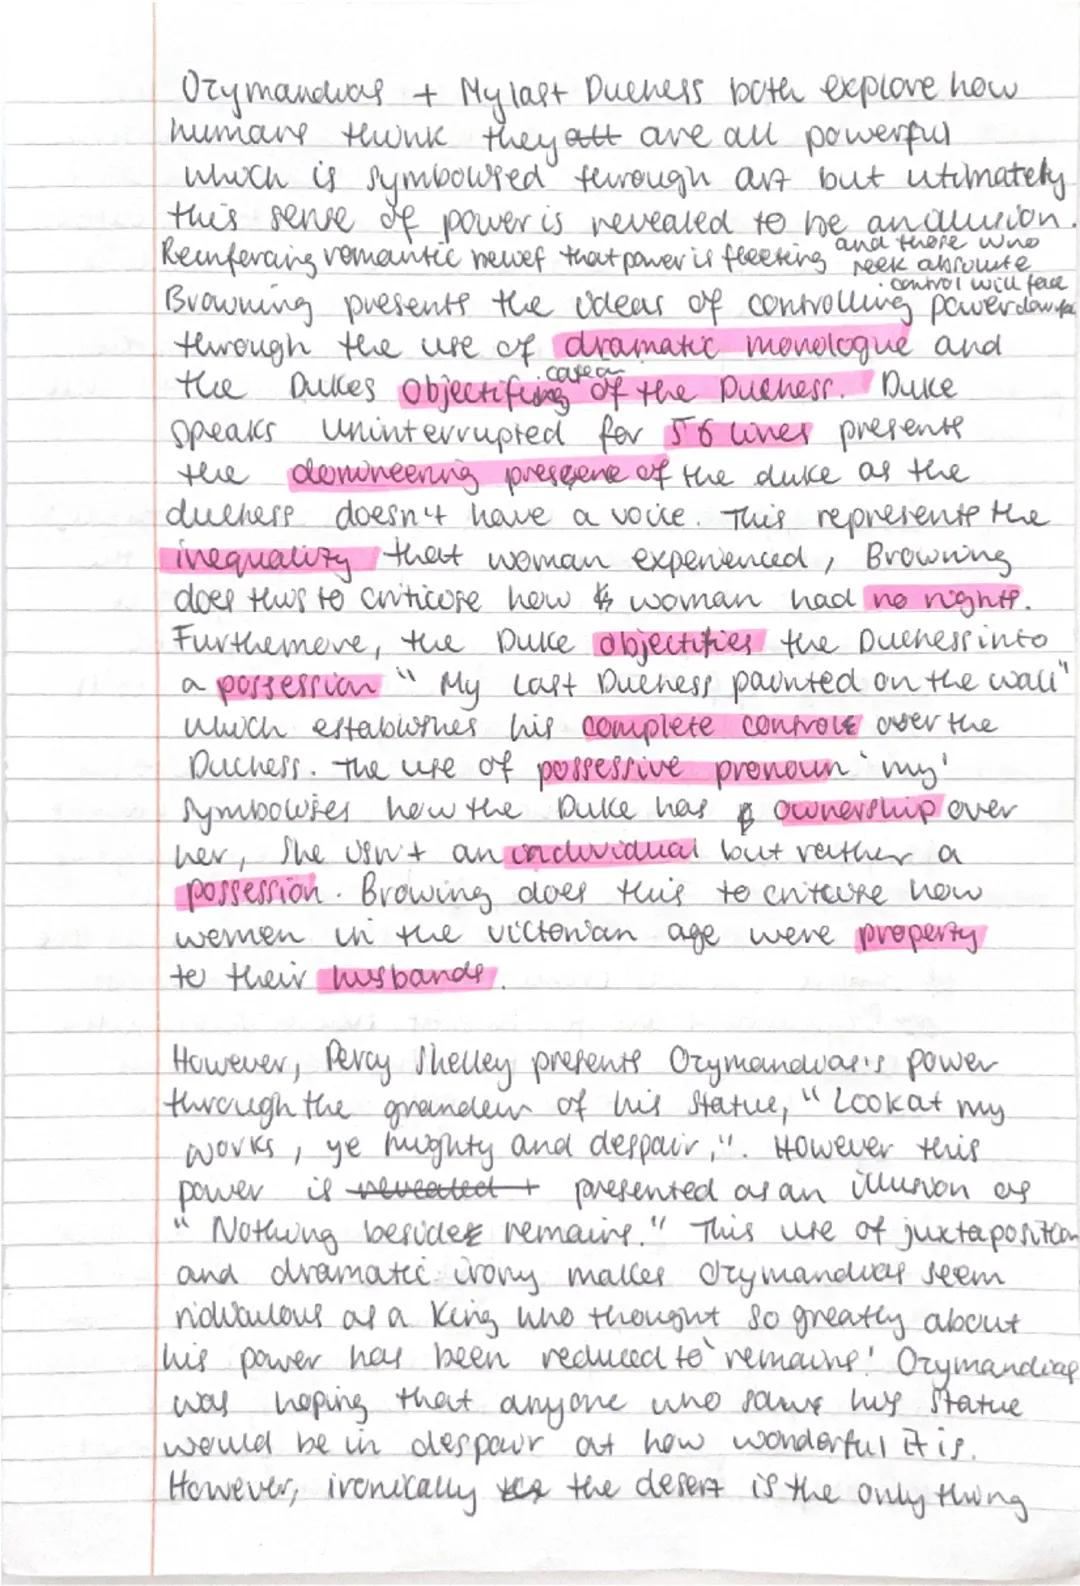 Ozymandias + My last Duchess both explore how
humans think they all are all powerful
which is symbolised through art but utimately
this sense of power is revealed to be an illusion.
Reinforcing romantic belief that power is fleeting and those who seek absolute control will face
Browning presents the ideas of controlling power
through the use of dramatic monologue and
the Dukes Objectifing of the Duchess. Duke
speaks Uninterrupted for 56 lines presents
the domineering presence of the duke as the
duchess doesn't have a voice. This represents the
inequality that woman experienced, Browning
does this to criticise how woman had no rights.
Furthemore, the Duke objectifies the Duchess into
a possession " My Last Duchess painted on the wall"
which establishes his complete control over the
Duchess. The use of possessive pronoun 'my'
Symbolises how the Duke has ownership over
her, She isn't an individual but rather a
possession. Browing does this to criticise how
women in the victorian age were property
to their husbands.
However, Percy Shelley presents Ozymandias's power
through the grandeur of his Statue, " Look at my
works, ye mighty and despair,". However this
power is revealed t presented as an illusion as
" Nothing beside remains." This use of juxtaposition
and dramatic irony makes Ozymandias seem
ridiculous as a King who thought so greatly about
his power has been reduced to 'remains'. Ozymandias
was hoping that anyone who saw his Statue
would be in despair at how wonderful it is.
However, ironically the desert is the only thing